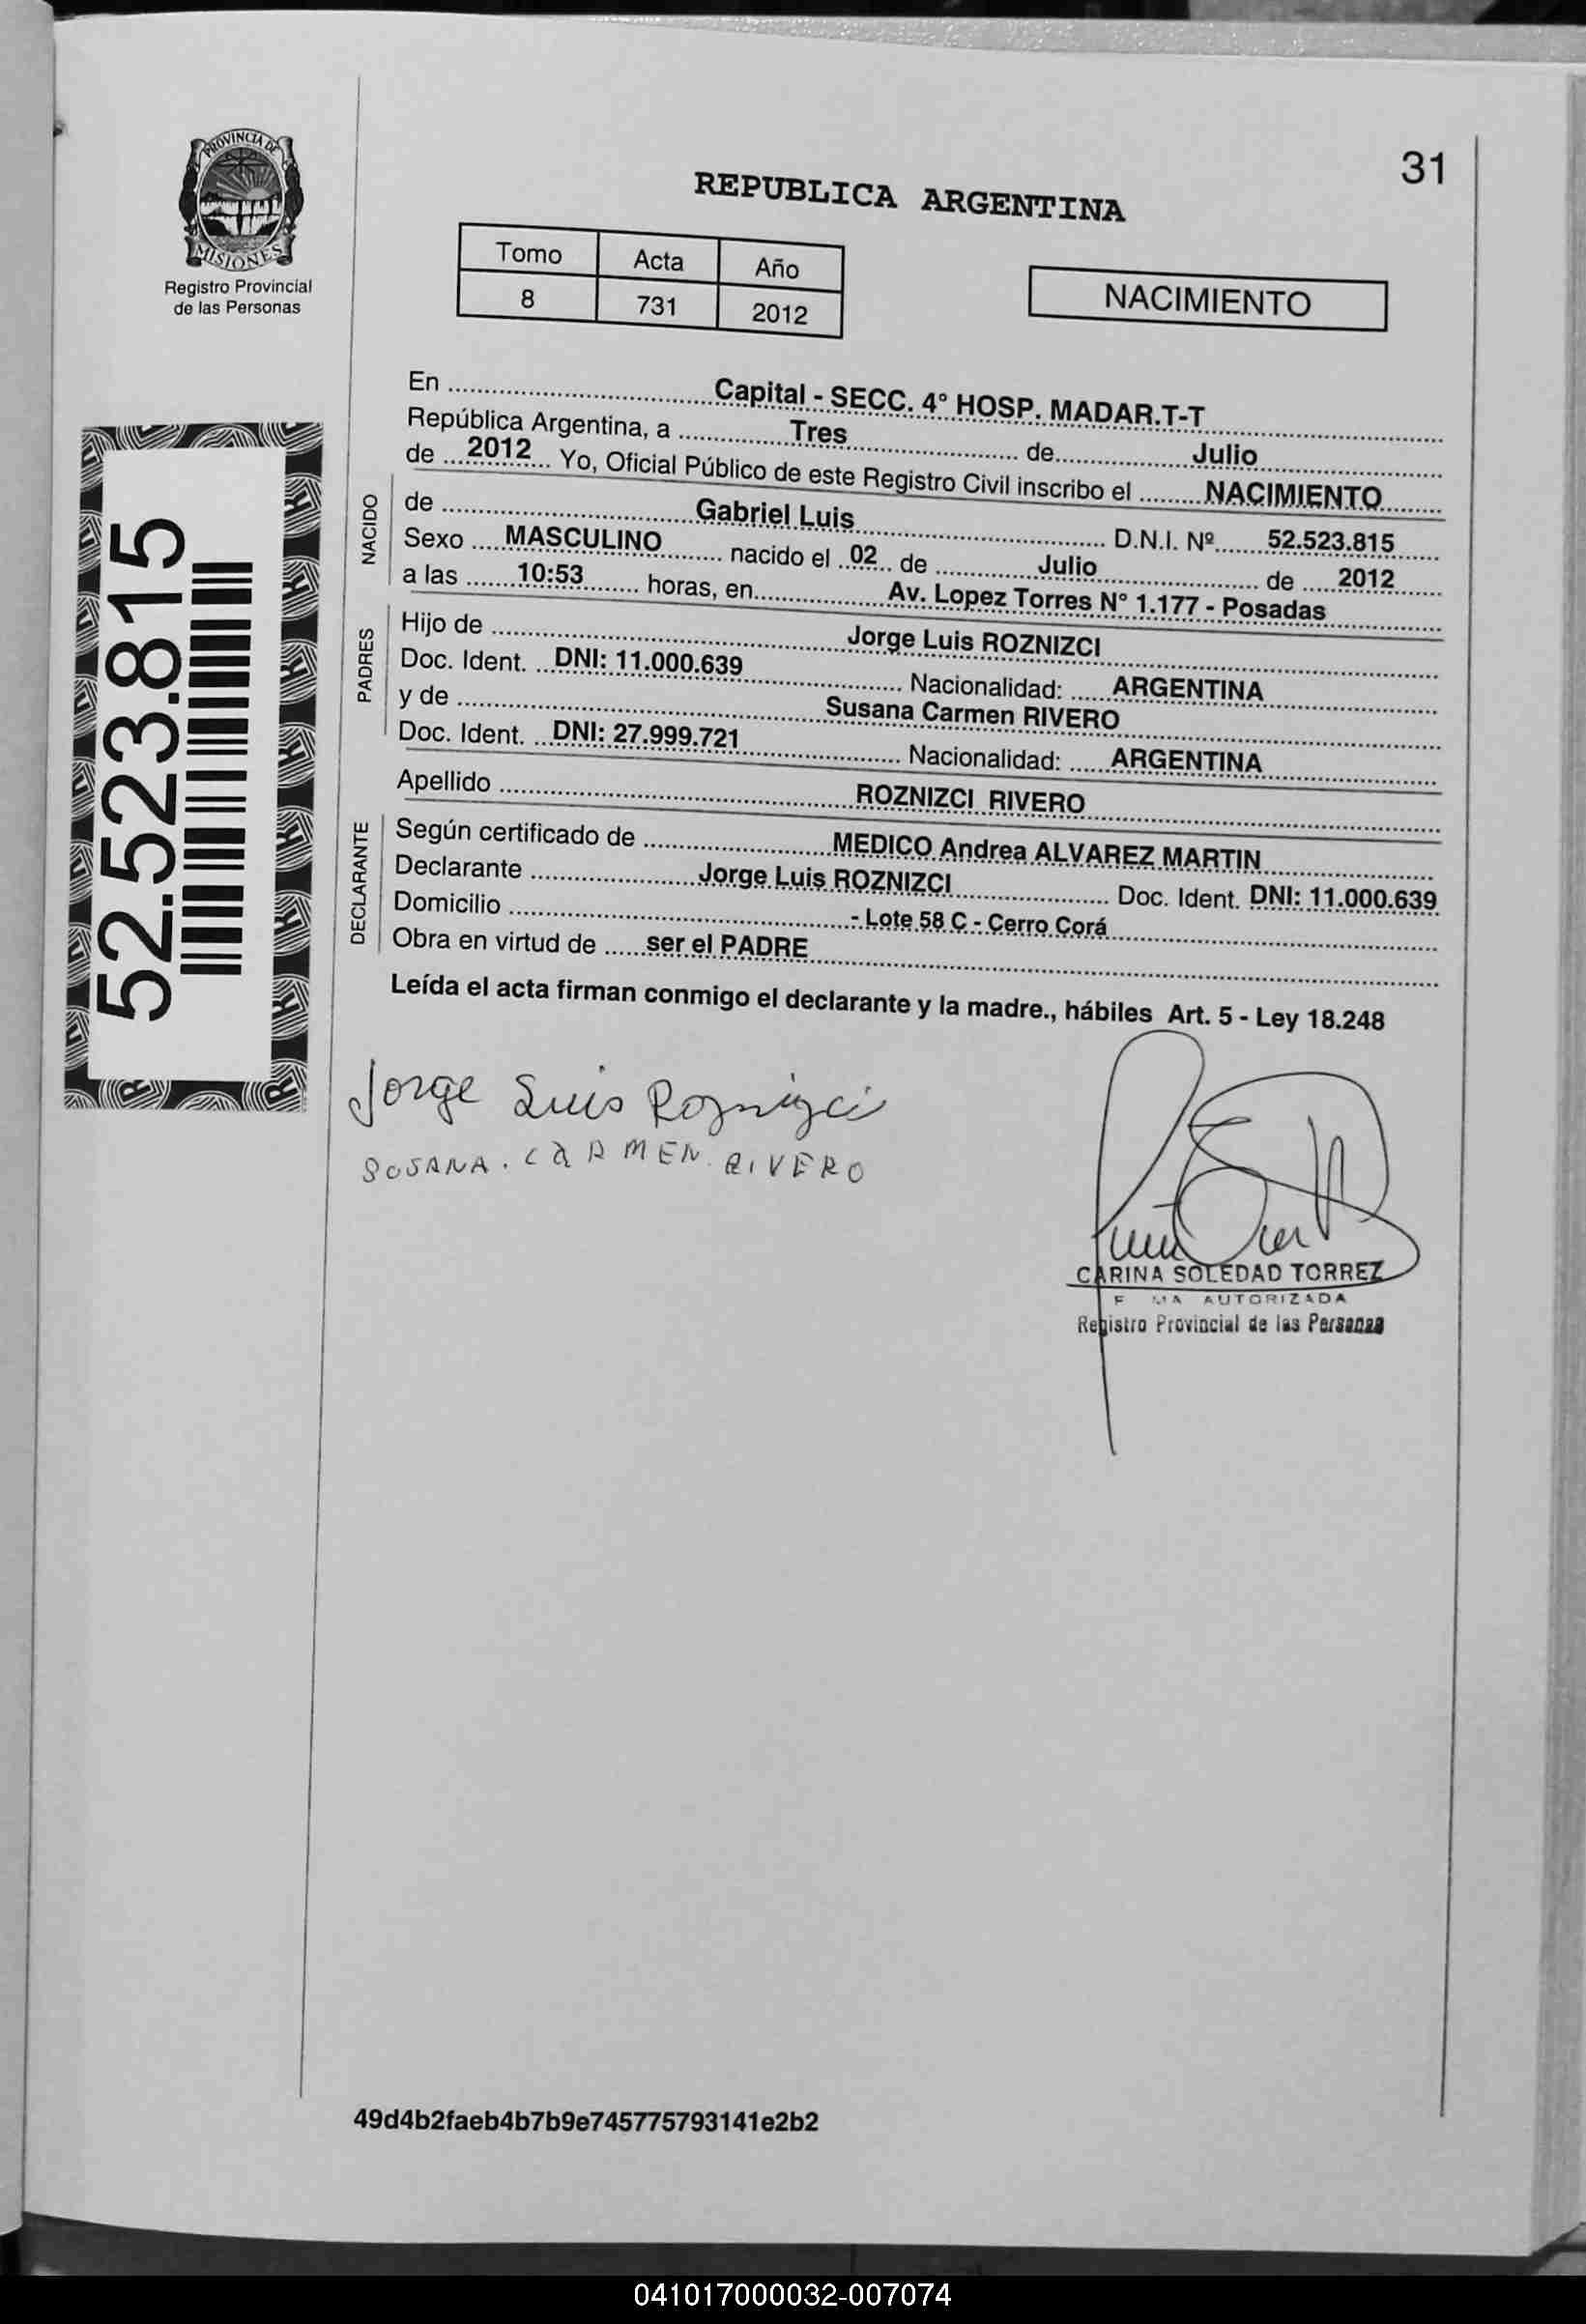 PROVINCIA DE
MISIONES
Registro Provincial
de las Personas
31
REPUBLICA ARGENTINA
Tomo Acta Año
8 731 2012
NACIMIENTO
52.523.815
En Capital - SECC. 4° HOSP. MADAR.T-T
República Argentina, a Tres de Julio
de 2012 Yo, Oficial Público de este Registro Civil inscribo el NACIMIENTO
NACIDO
de Gabriel Luis D.N.I. Nº 52.523.815
Sexo MASCULINO nacido el 02 de Julio de 2012
a las 10:53 horas, en Av. Lopez Torres N° 1.177 - Posadas
PADRES
Hijo de Jorge Luis ROZNIZCI
Doc. Ident. DNI: 11.000.639 Nacionalidad: ARGENTINA
y de Susana Carmen RIVERO
Doc. Ident. DNI: 27.999.721 Nacionalidad: ARGENTINA
Apellido ROZNIZCI RIVERO
DECLARANTE
Según certificado de MEDICO Andrea ALVAREZ MARTIN
Declarante Jorge Luis ROZNIZCI Doc. Ident. DNI: 11.000.639
Domicilio - Lote 58 C - Cerro Corá
Obra en virtud de ser el PADRE
Leída el acta firman conmigo el declarante y la madre., hábiles Art. 5 - Ley 18.248
Jorge Luis Roznizci
SUSANA. CARMEN. RIVERO
CARINA SOLEDAD TORREZ
AUTORIZADA
Registro Provincial de las Personas
49d4b2faeb4b7b9e745775793141e2b2
041017000032-007074